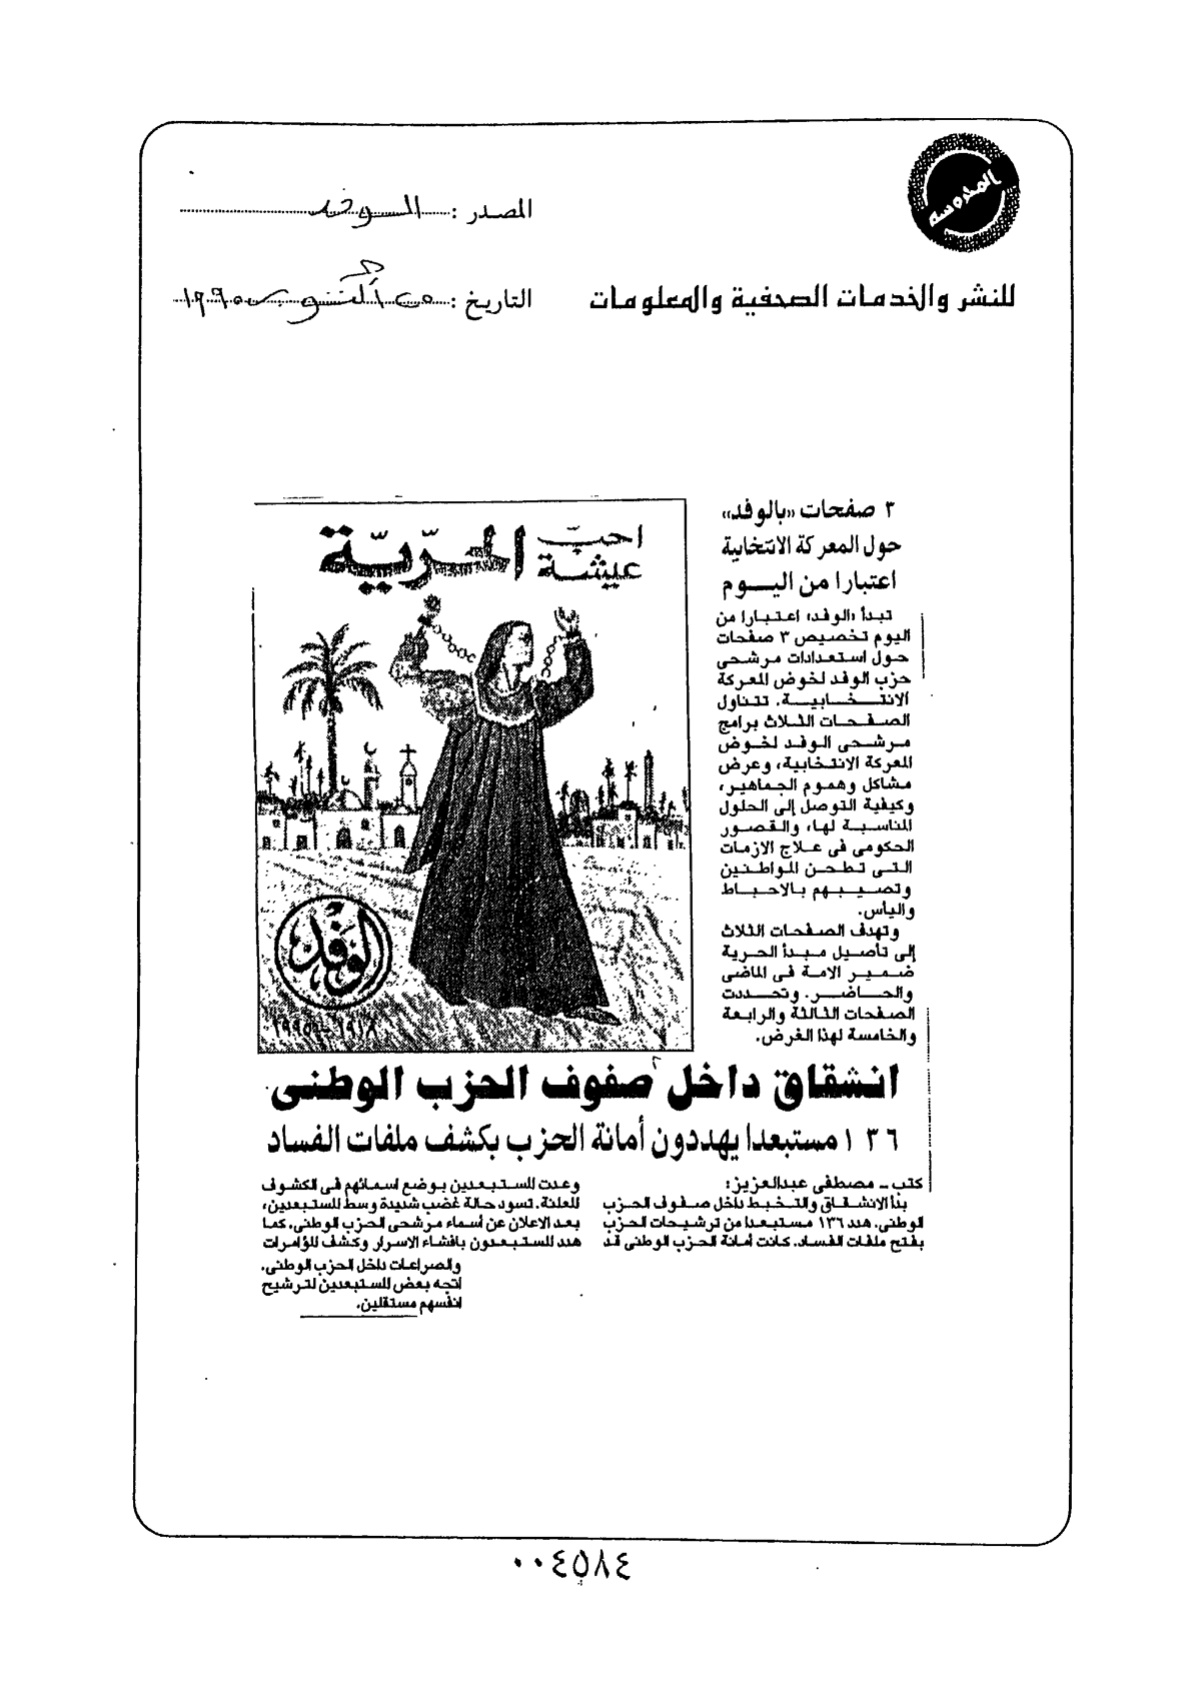 المحروسة
المصدر : الوفد
للنشر والخدمات الصحفية والمعلومات
التاريخ : ٢٥ أكتوبر ١٩٩٥
٣ صفحات «بالوفد»
حول المعركة الانتخابية
اعتبارا من اليوم
تبدأ «الوفد» اعتبارا من
اليوم تخصيص ٣ صفحات
حول استعدادات مرشحى
حزب الوفد لخوض المعركة
الانتخابية. تتناول
الصفحات الثلاث برامج
مرشحى الوفد لخوض
المعركة الانتخابية، وعرض
مشاكل وهموم الجماهير،
وكيفية التوصل إلى الحلول
المناسبة لها، والقصور
الحكومى فى علاج الازمات
التى تطحن المواطنين
وتصيبهم بالاحباط
واليأس.
وتهدف الصفحات الثلاث
إلى تأصيل مبدأ الحرية
ضمير الامة فى الماضى
والحاضر. وتحددت
الصفحات الثالثة والرابعة
والخامسة لهذا الغرض.
احبّ
عيشة
الحرّيّة
الوفد
١٩١٨ - ١٩٩٥
انشقاق داخل صفوف الحزب الوطنى
١٣٦ مستبعدا يهددون أمانة الحزب بكشف ملفات الفساد
كتب - مصطفى عبدالعزيز:
بدأ الانشقاق والتخبط داخل صفوف الحزب
الوطنى. هدد ١٣٦ مستبعدا من ترشيحات الحزب
بفتح ملفات الفساد. كانت أمانة الحزب الوطنى قد
وعدت المستبعدين بوضع اسمائهم فى الكشوف
المعلنة. تسود حالة غضب شديدة وسط المستبعدين،
بعد الاعلان عن أسماء مرشحى الحزب الوطنى. كما
هدد المستبعدون بافشاء الاسرار وكشف المؤامرات
والصراعات داخل الحزب الوطنى.
اتجه بعض المستبعدين لترشيح
انفسهم مستقلين.
٠٠٤٥٨٤